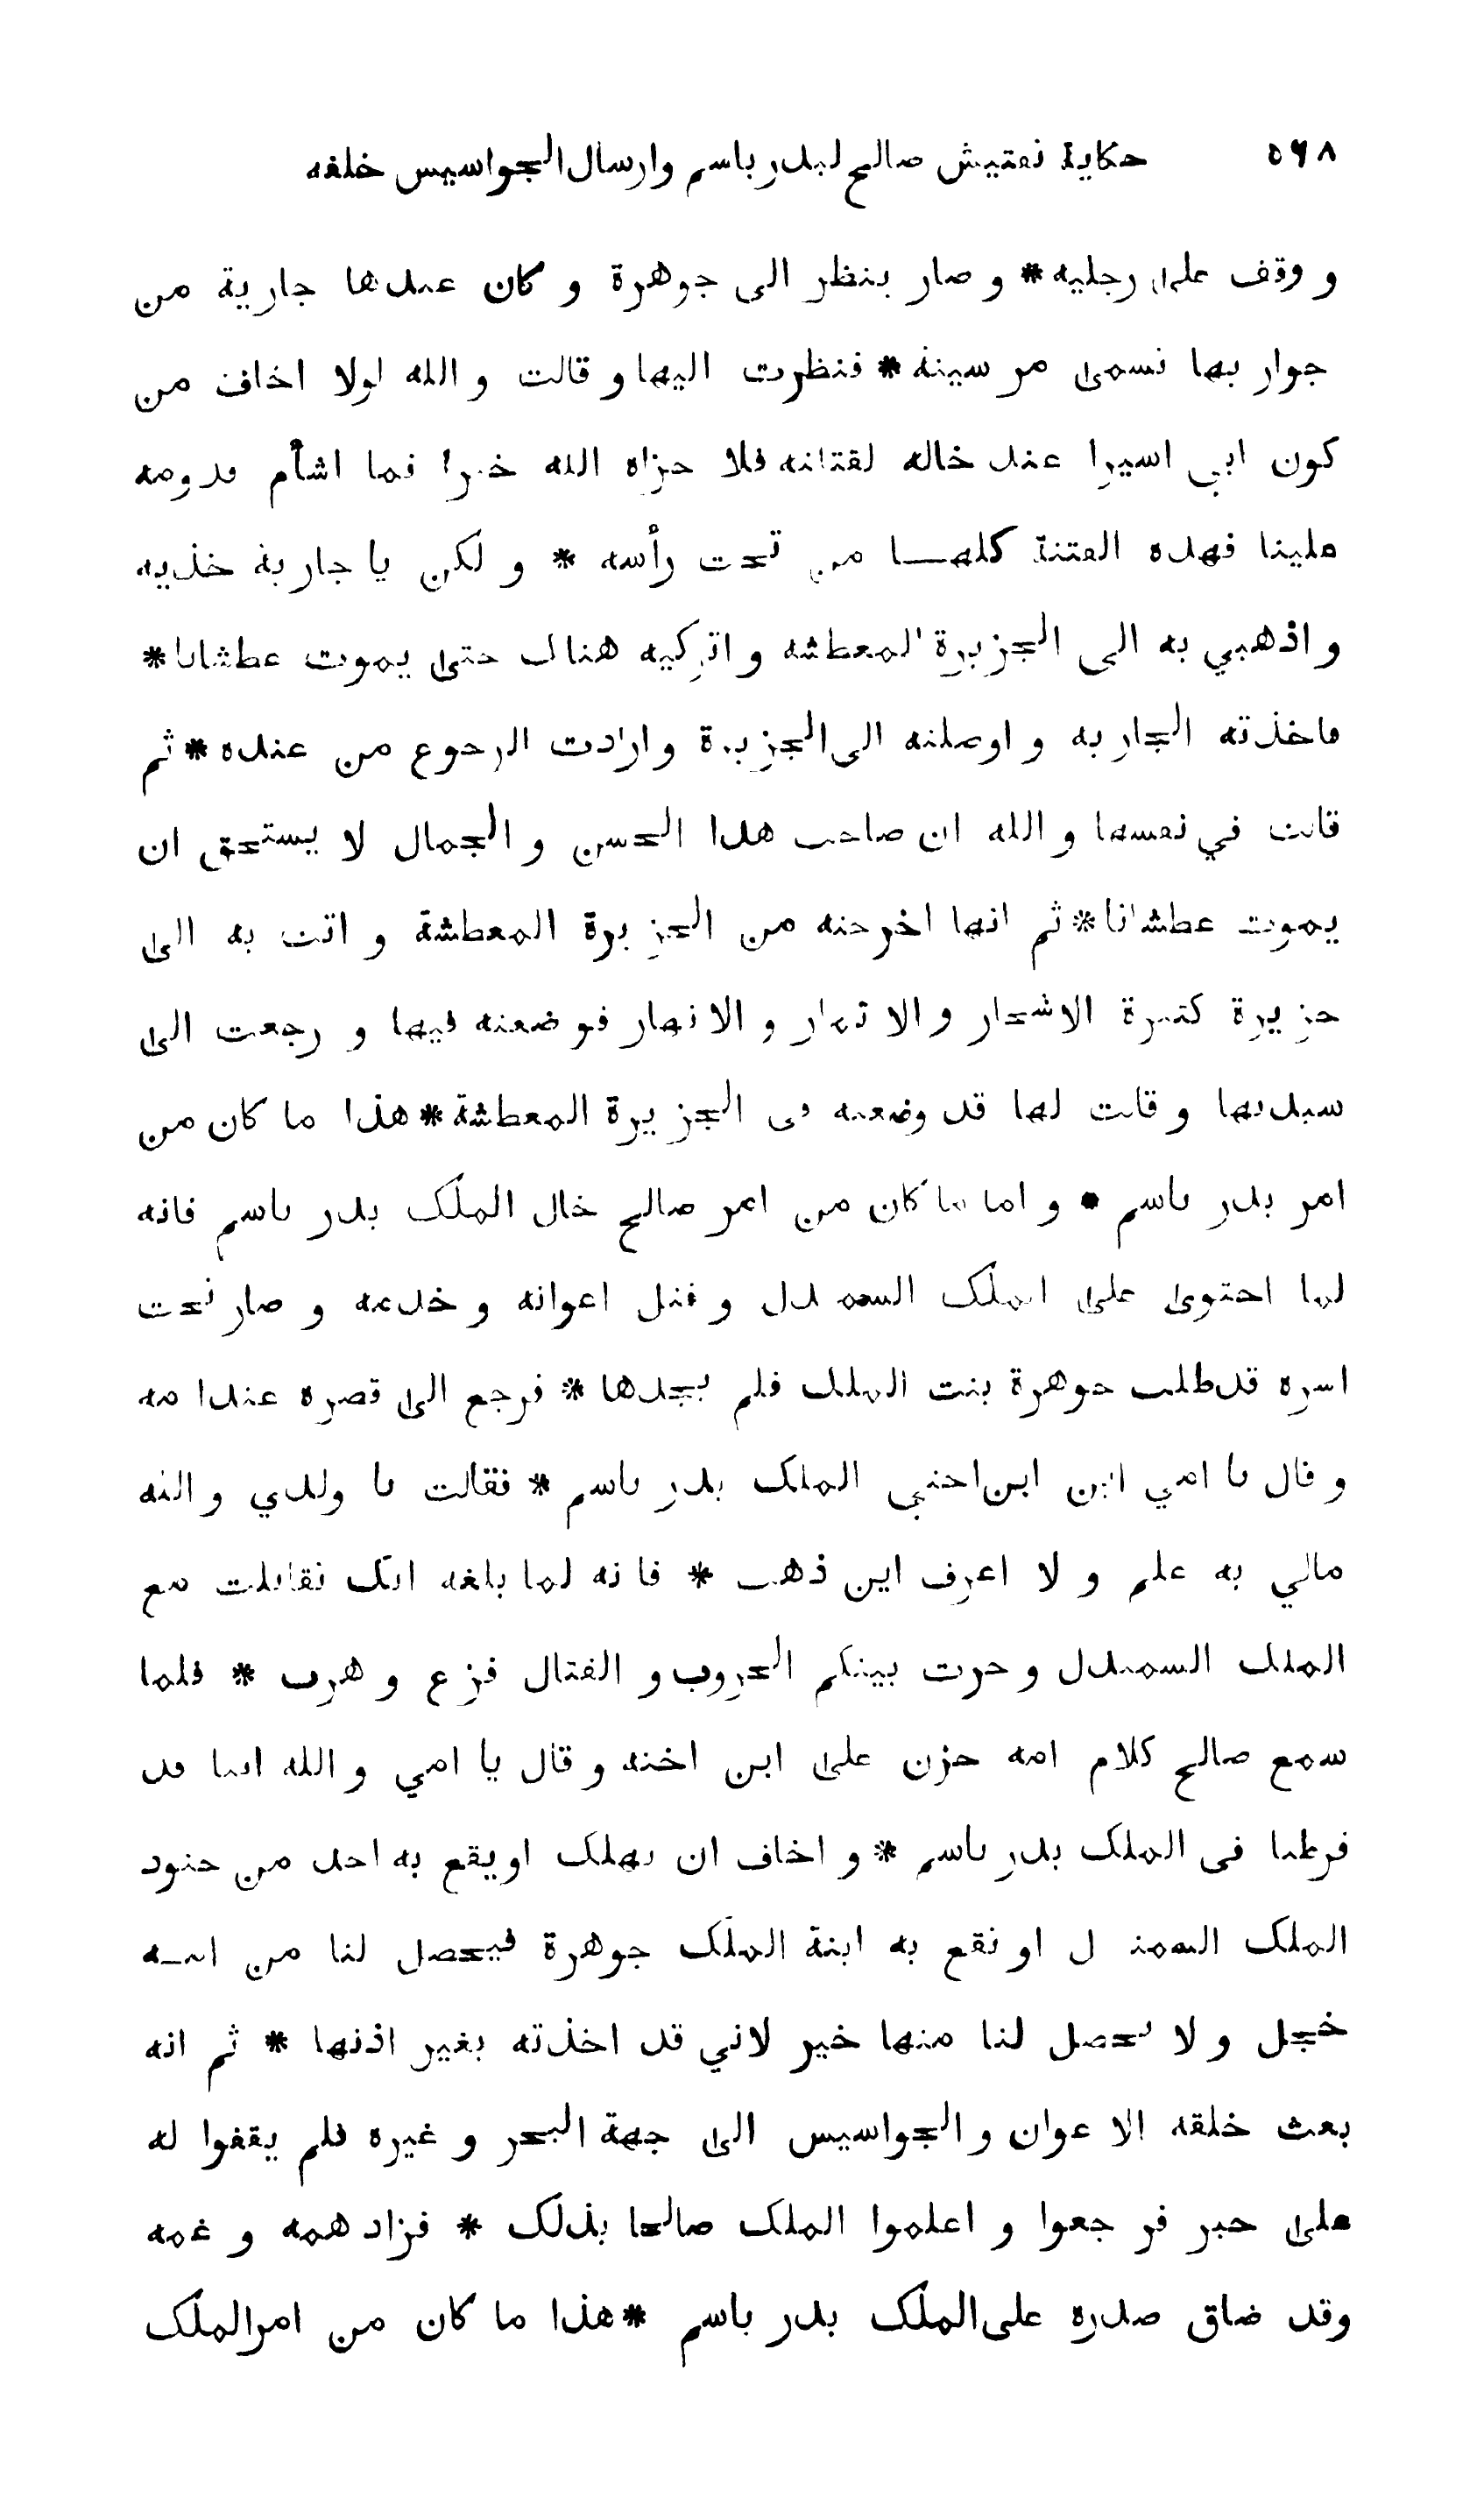 ٥٦٨ حكاية تفتيش صالح لبدر باسم وارسال الجواسيس خلفه
و وقف على رجليه * و صار ينظر الى جوهرة و كان عندها جارية من
جواريها تسمى مرسينة * فنظرت اليها و قالت و الله لولا اخاف من
كون ابي اسيرا عند خاله لقتلته فلا جزاه الله خيرا فما اشأم قدومه
علينا فهذه الفتنة كلها من تحت رأسه * و لكن يا جارية خذيه
و اذهبي به الى الجزيرة المعطشه و اتركيه هناك حتى يموت عطشانا *
فاخذته الجاريه و اوصلته الى الجزيرة و ارادت الرجوع من عنده * ثم
قالت في نفسها و الله ان صاحب هذا الحسن و الجمال لا يستحق ان
يموت عطشانا * ثم انها اخرجته من الجزيرة المعطشة و اتت به الى
جزيرة كثيرة الاشجار و الاثمار و الانهار فوضعته فيها و رجعت الى
سيدتها و قالت لها قد وضعته في الجزيرة المعطشة * هذا ما كان من
امر بدر باسم * و اما ما كان من امر صالح خال الملك بدر باسم فانه
لما احتوى على الملك السمندل و قتل اعوانه و خدمه و صار تحت
اسره قد طلب جوهرة بنت الملك فلم يجدها * فرجع الى قصره عند امه
و قال يا امي اين ابن اختي الملك بدر باسم * فقالت يا ولدي و الله
مالي به علم و لا اعرف اين ذهب * فانه لما بلغه انك تقاتلت مع
الملك السمندل و جرت بينكم الحروب و القتال فزع و هرب * فلما
سمع صالح كلام امه حزن على ابن اخته و قال يا امي و الله اننا قد
فرطنا في الملك بدر باسم * و اخاف ان يهلك او يقع به احد من جنود
الملك السمندل او تقع به ابنة الملك جوهرة فيحصل لنا من امه
خجل و لا يحصل لنا منها خير لاني قد اخذته بغير اذنها * ثم انه
بعث خلفه الاعوان و الجواسيس الى جهة البحر و غيره فلم يقفوا له
على خبر فرجعوا و اعلموا الملك صالحا بذلك * فزاد همه و غمه
وقد ضاق صدره على الملك بدر باسم * هذا ما كان من امر الملك